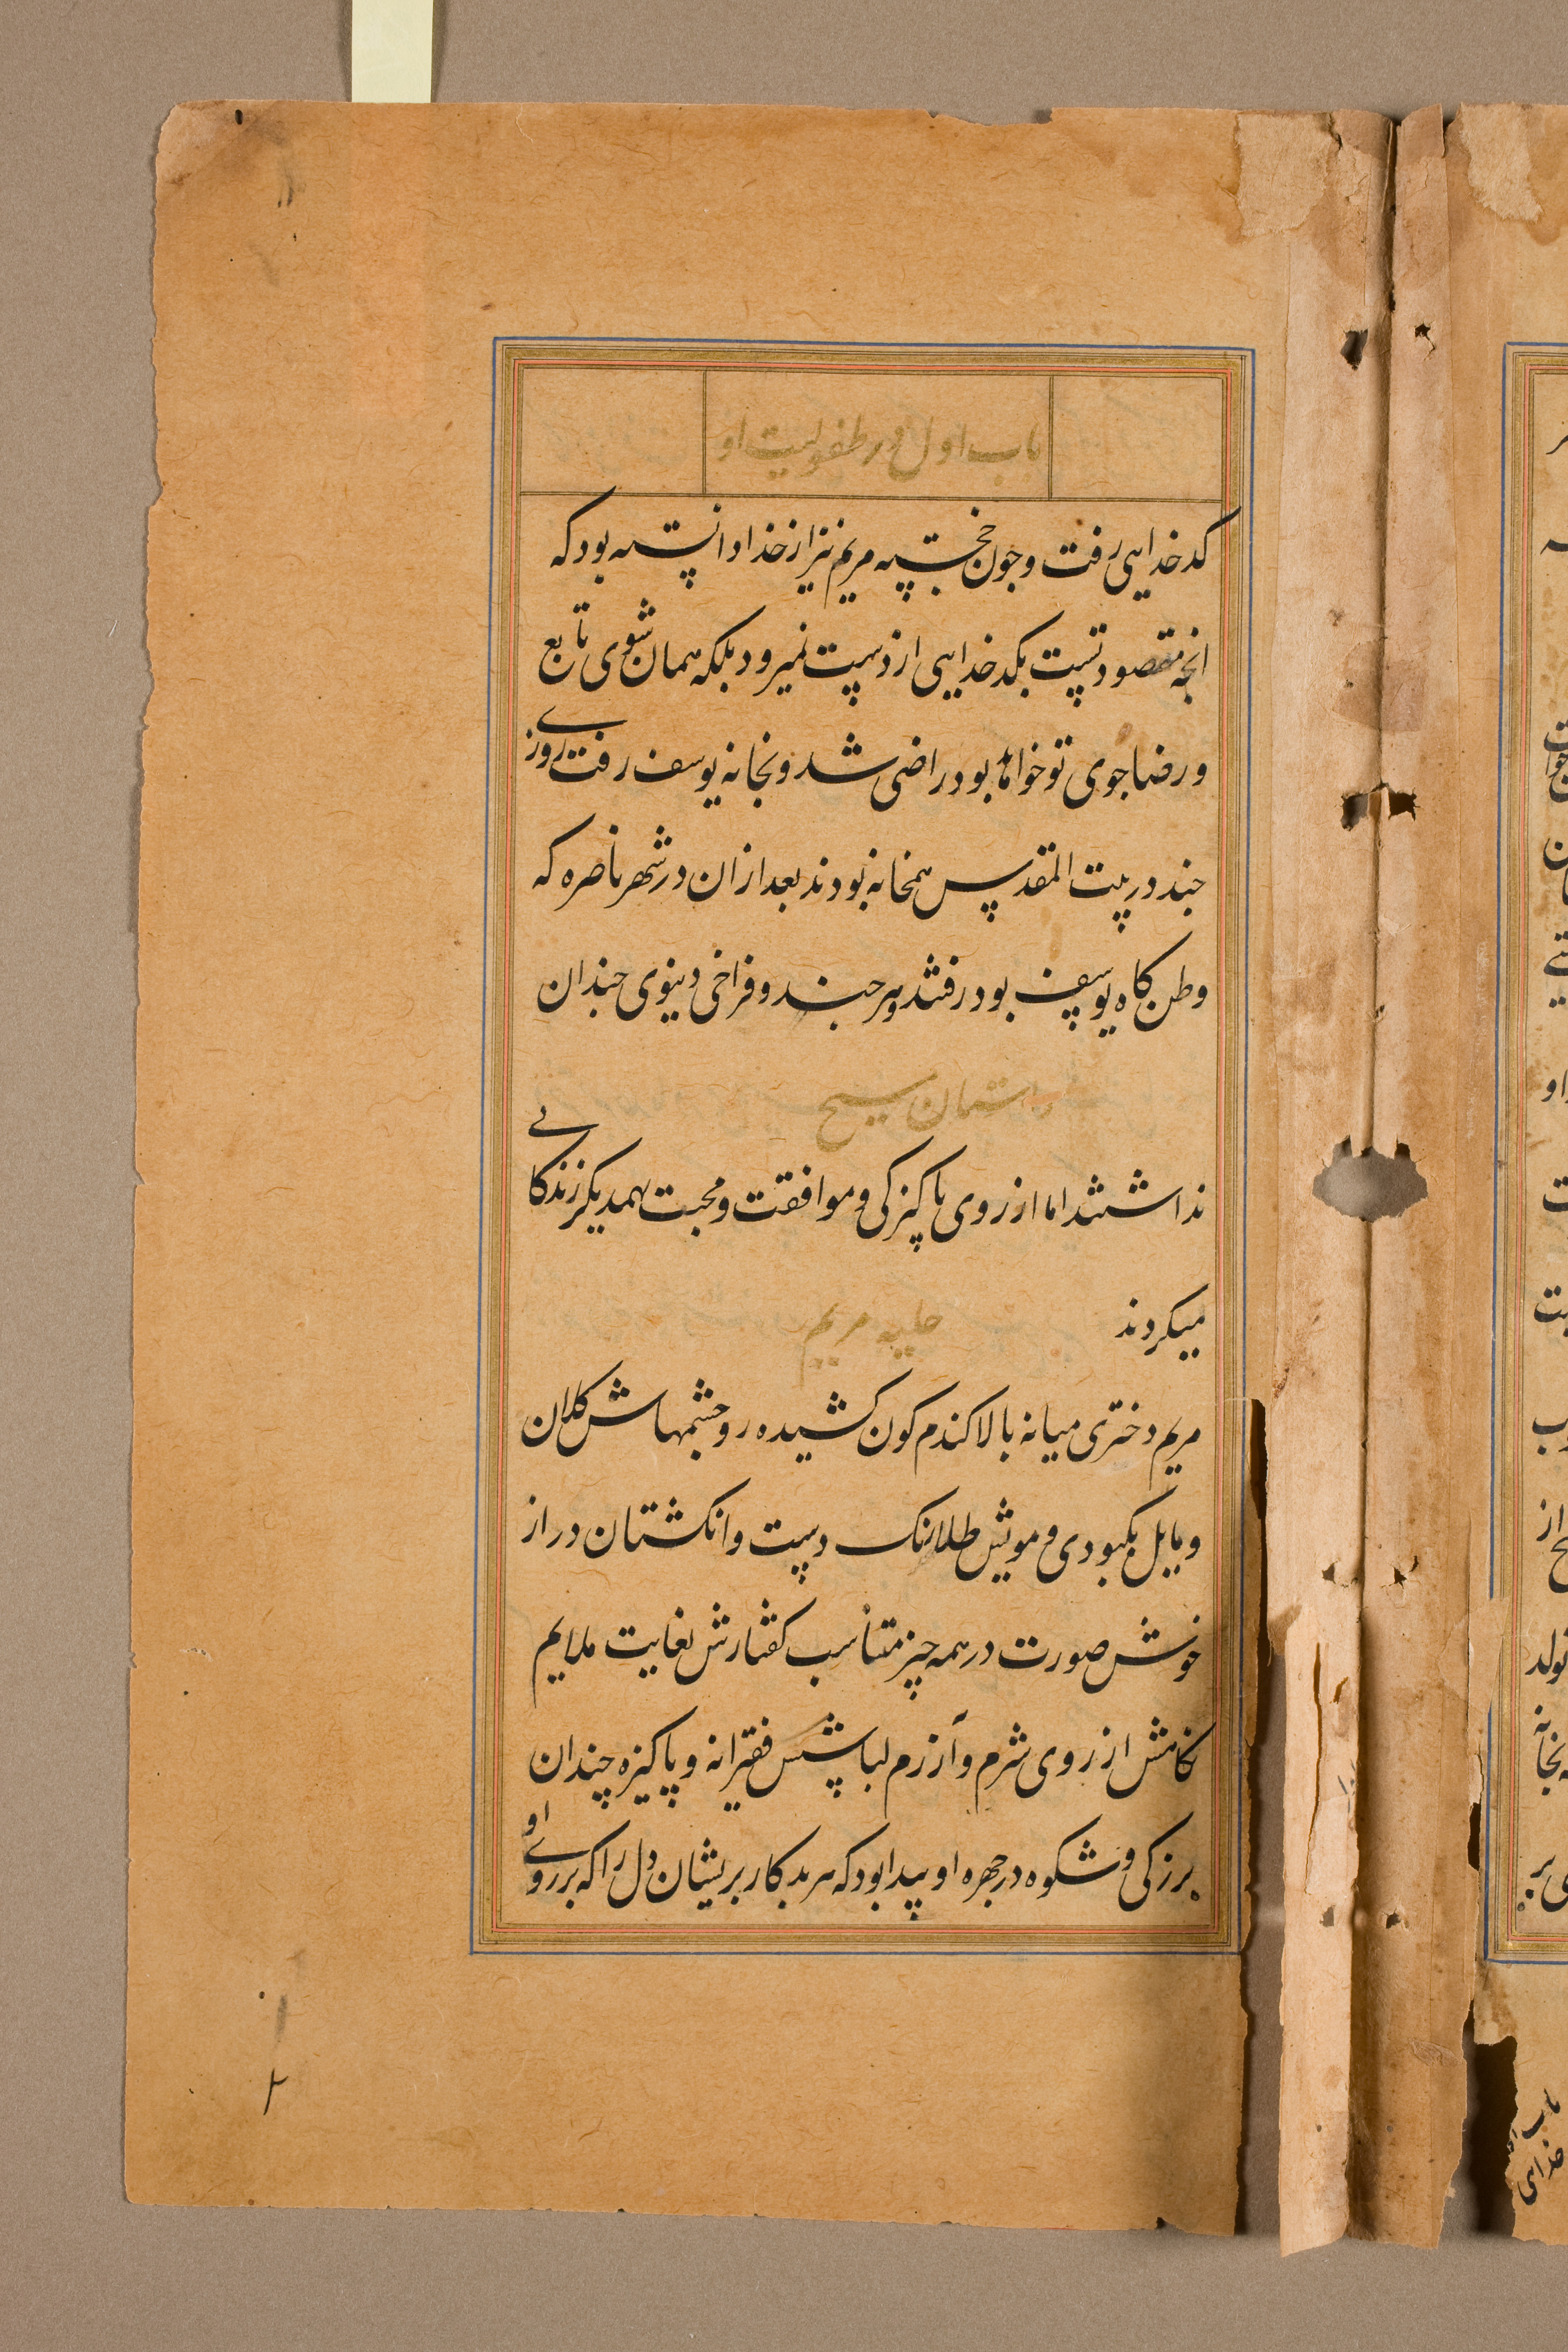 باب اول در طفولیت او
کدخدایی رفت و جون خجسته مریم نیز از خدا دانسته بود که
انجه مقصود تست بکدخدایی از دست نمیرود بلکه همان شوی تابع
و رضاجوی تو خواهد بود راضی شد و بخانه یوسف رفت روزے
جند در بیت المقدس همخانه بودند بعد ازان در شهر ناصره که
وطن کاه یوسف بود رفتند و هر جند و فراخی دنیوی جندان
داستان مسیح
نداشتند اما از روی پاکیزکی و موافقت و محبت بهمدیکر زندکانے
میکردند
حلیه مریم
مریم دختری میانه بالا کندم کون کشیده رو جشمهاش کلان
و مایل بکبودی و مویش طلا رنک دست و انکشتان دراز
خوش صورت در همه چیز متناسب کفتارش بغایت ملایم
نکاهش از روی شرم و آزرم لباسش فقیرانه و پاکیزه چندان
بزرکی و شکوه در جهره او پیدا بود که هر بدکار پریشان دل را که بر روے او